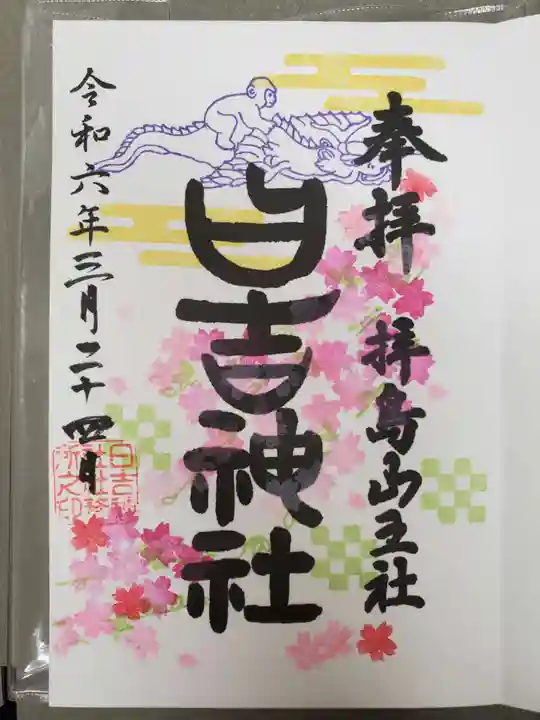 奉拝 拝島山王社
日吉神社
令和六年三月二十四日
日吉神
社社務
所之印